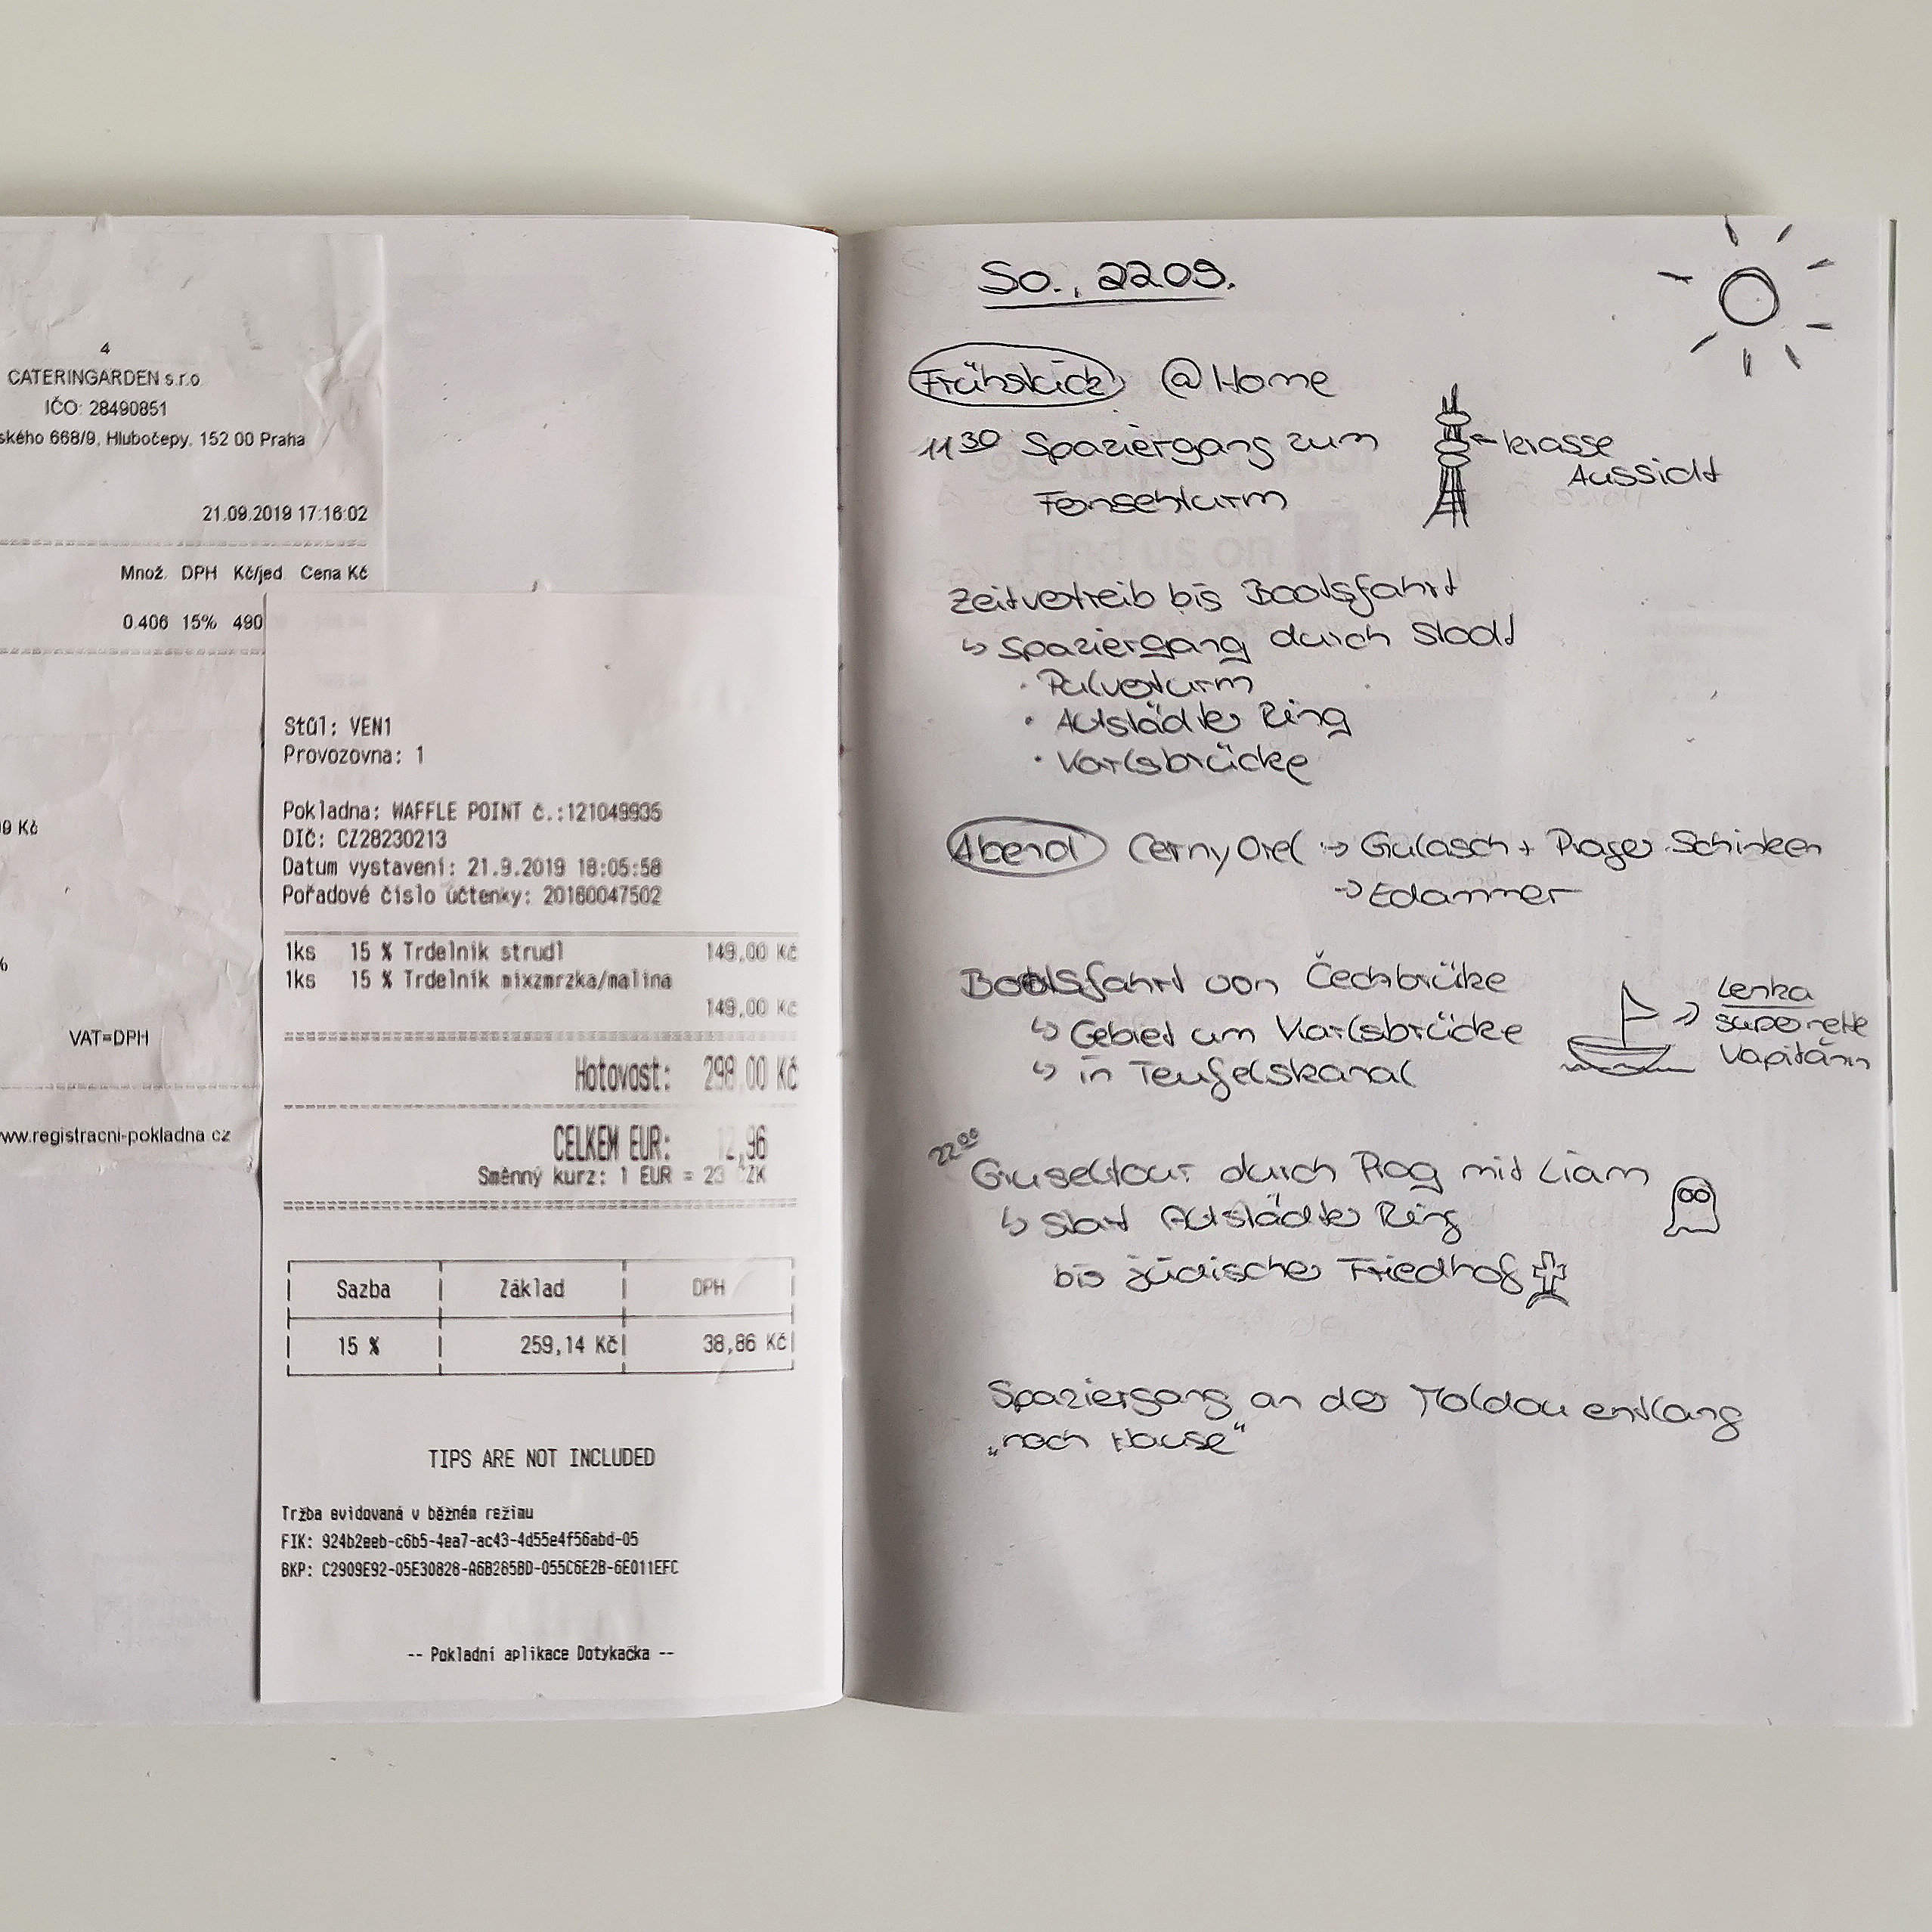 4
CATERINGARDEN s.r.o.
IČO: 28490851
ského 668/9, Hlubočepy, 152 00 Praha
21.09.2019 17:16:02
Množ. DPH Kč/jed. Cena Kč
0.406 15% 490
Kč
%
VAT=DPH
www.registracni-pokladna.cz
Stůl: VEN1
Provozovna: 1
Pokladna: WAFFLE POINT č.:121049935
DIČ: CZ28230213
Datum vystavení: 21.9.2019 18:05:58
Pořadové číslo účtenky: 20160047502
1ks 15 % Trdelník strudl 149,00 Kč
1ks 15 % Trdelník mixzmrzka/malina
149,00 Kč
Hotovost: 298,00 Kč
CELKEM EUR: 12,96
Směnný kurz: 1 EUR = 23 CZK
Sazba Základ DPH
15 % 259,14 Kč 38,86 Kč
TIPS ARE NOT INCLUDED
Tržba evidovaná v běžném režimu
FIK: 924b2eeb-c6b5-4ea7-ac43-4d55e4f56abd-05
BKP: C2909E92-05E30828-A6B285BD-055C6E2B-6E011EFC
-- Pokladní aplikace Dotykačka --
So., 22.09.
Frühstück @Home
11:30 Spaziergang zum
Fernsehturm
krasse
Aussicht
Find us on
Zeitvertreib bis Bootsfahrt
↳ Spaziergang durch Stadt
· Pulverturm
· Altstädter Ring
· Karlsbrücke
Abend Cerny Orel → Gulasch + Prager Schinken
→ Edammer
Bootsfahrt von Čechbrücke
↳ Gebiet um Karlsbrücke
↳ in Teufelskanal
Lenka
supernette
Kapitänin
22:00
Gruseltour durch Prag mit Liam
↳ Start Altstädter Ring
bis jüdischer Friedhof
Spaziergang an der Moldau entlang
„nach Hause"